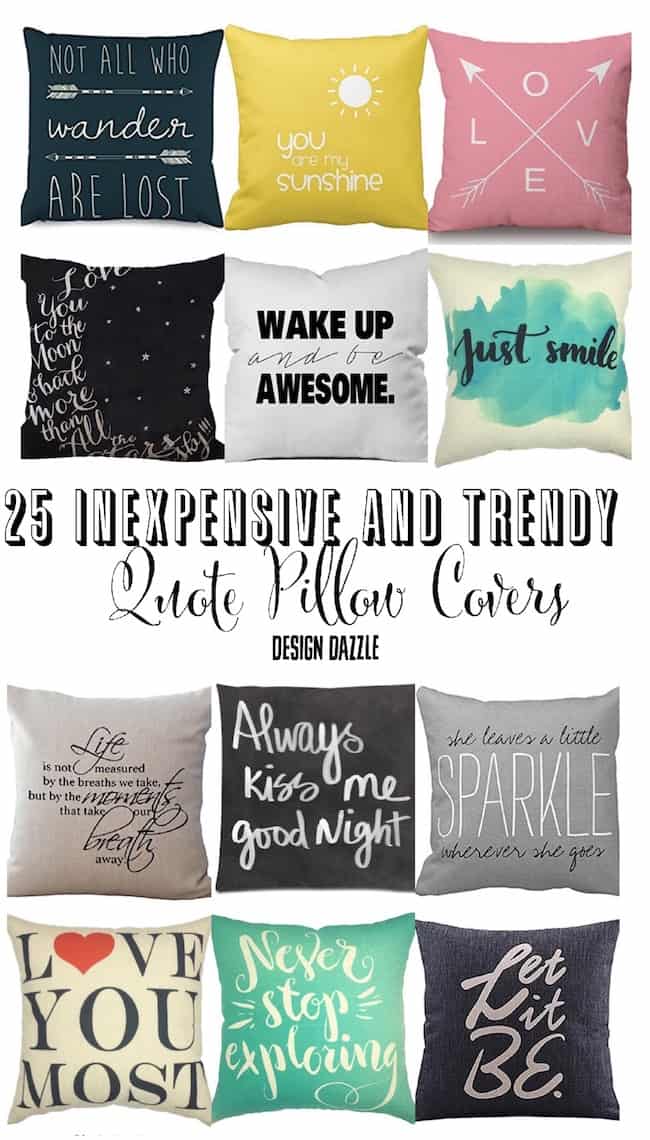 NOT ALL WHO
wander
ARE LOST
you
are my
sunshine
O
L V
E
Love
You
to the
Moon
& back
more
than
All the
star sky!!!
WAKE UP
and be
AWESOME.
Just smile
25 INEXPENSIVE AND TRENDY
Quote Pillow Covers
DESIGN DAZZLE
Life
is not measured
by the breaths we take,
but by the moments
that take our
breath
away.
Always
kiss me
good Night
she leaves a little
SPARKLE
wherever she goes
L❤VE
YOU
MOST
Never
stop
exploring
Let
it
BE.